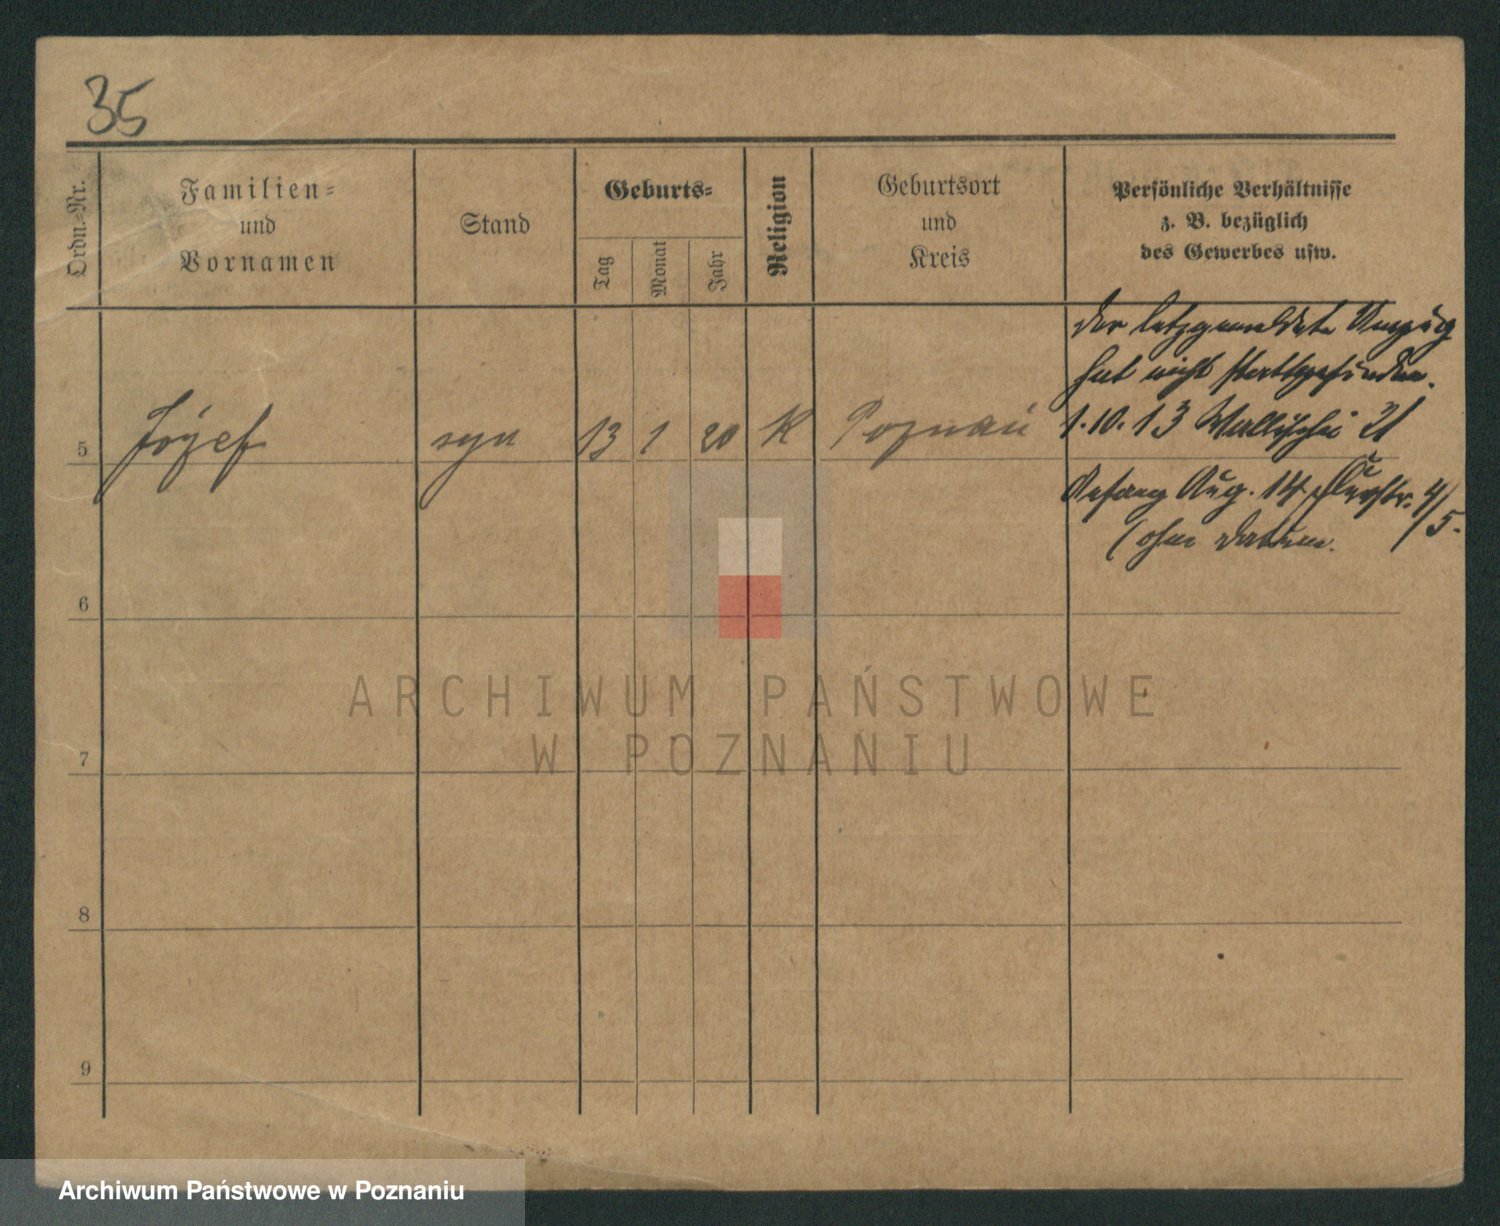 35
Ordn.-Nr.
Familien-
und
Vornamen
Stand
Geburts-
Tag
Monat
Jahr
Religion
Geburtsort
und
Kreis
Persönliche Verhältnisse
z. B. bezüglich
des Gewerbes usw.
der letzgemeldete Umzug
hat nicht stattgefunden.
5 Józef syn 13 1 20 K Poznań
1.10.13 Wallischei 21
Anfang Aug. 14 4/5.
(ohne Datum.
6
7
8
9
ARCHIWUM PAŃSTWOWE
W POZNANIU
Archiwum Państwowe w Poznaniu